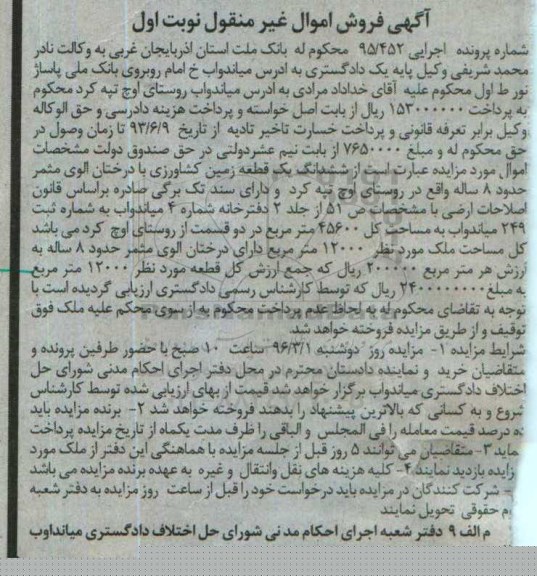 آگهی فروش اموال غیر منقول نوبت اول
شماره پرونده اجرایی ۹۵/۴۵۲ محکوم له بانک ملت استان اذربایجان غربی به وکالت نادر
محمد شریفی وکیل پایه یک دادگستری به ادرس میاندواب خ امام روبروی بانک ملی پاساژ
نور ط اول محکوم علیه آقای خداداد مرادی به ادرس میاندواب روستای اوچ تپه کرد محکوم
به پرداخت ۱۵۳۰۰۰۰۰۰ ریال از بابت اصل خواسته و پرداخت هزینه دادرسی و حق الوکاله
وکیل برابر تعرفه قانونی و پرداخت خسارت تاخیر تادیه از تاریخ ۹۳/۶/۹ تا زمان وصول در
حق محکوم له و مبلغ ۷۶۵۰۰۰۰ از بابت نیم عشردولتی در حق صندوق دولت مشخصات
اموال مورد مزایده عبارت است از ششدانگ یک قطعه زمین کشاورزی با درختان الوی مثمر
حدود ۸ ساله واقع در روستای اوچ تپه کرد و دارای سند تک برگی صادره براساس قانون
اصلاحات ارضی با مشخصات ص ۵۱ از جلد ۲ دفترخانه شماره ۴ میاندواب به شماره ثبت
۲۴۹ میاندواب به مساحت کل ۴۵۶۰۰ متر مربع در دو قسمت از روستای اوچ کرد می باشد
کل مساحت ملک مورد نظر ۱۲۰۰۰ متر مربع دارای درختان الوی مثمر حدود ۸ ساله به
ارزش هر متر مربع ۲۰۰۰۰۰ ریال که جمع ارزش کل قطعه مورد نظر ۱۲۰۰۰ متر مربع
به مبلغ ۲۴۰۰۰۰۰۰۰۰ ریال که توسط کارشناس رسمی دادگستری ارزیابی گردیده است با
توجه به تقاضای محکوم له به لحاظ عدم پرداخت محکوم به از سوی محکم علیه ملک فوق
توقیف و از طریق مزایده فروخته خواهد شد.
شرایط مزایده ۱- مزایده روز دوشنبه ۹۶/۳/۱ ساعت ۱۰ صبح با حضور طرفین پرونده و
متقاضیان خرید و نماینده دادستان محترم در محل دفتر اجرای احکام مدنی شورای حل
اختلاف دادگستری میاندواب برگزار خواهد شد قیمت از بهای ارزیابی شده توسط کارشناس
شروع و به کسانی که بالاترین پیشنهاد را بدهند فروخته خواهد شد ۲- برنده مزایده باید
ده درصد قیمت معامله را فی المجلس و الباقی را ظرف مدت یکماه از تاریخ مزایده پرداخت
نماید ۳- متقاضیان می توانند ۵ روز قبل از جلسه مزایده با هماهنگی این دفتر از ملک مورد
مزایده بازدید نمایند ۴- کلیه هزینه های نقل وانتقال و غیره به عهده برنده مزایده می باشد
- شرکت کنندگان در مزایده باید درخواست خود را قبل از ساعت روز مزایده به دفتر شعبه
حقوقی تحویل نمایند
م الف ۹ دفتر شعبه اجرای احکام مدنی شورای حل اختلاف دادگستری میانداوب